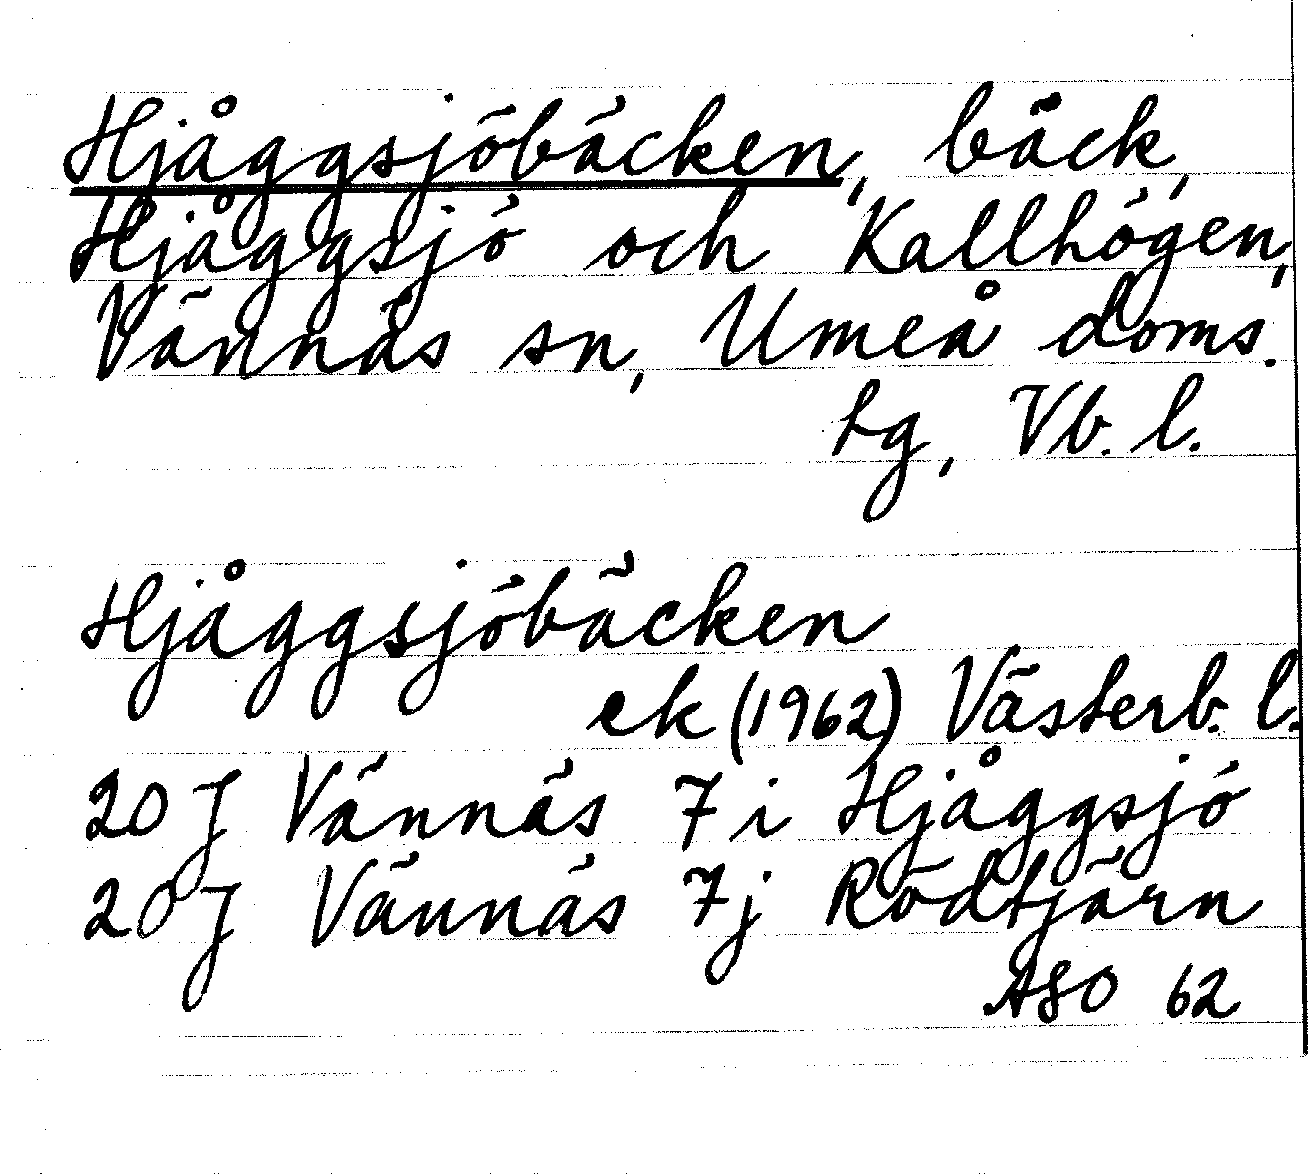 Hjåggsjöbäcken, bäck,
Hjåggsjö och Kallhögen,
Vännäs sn, Umeå doms.
tg, Vb. l.
Hjåggsjöbäcken
ek (1962) Västerb. l.
20 J Vännäs 7 i Hjåggsjö
20 J Vännäs 7 j Rödtjärn
ASO 62